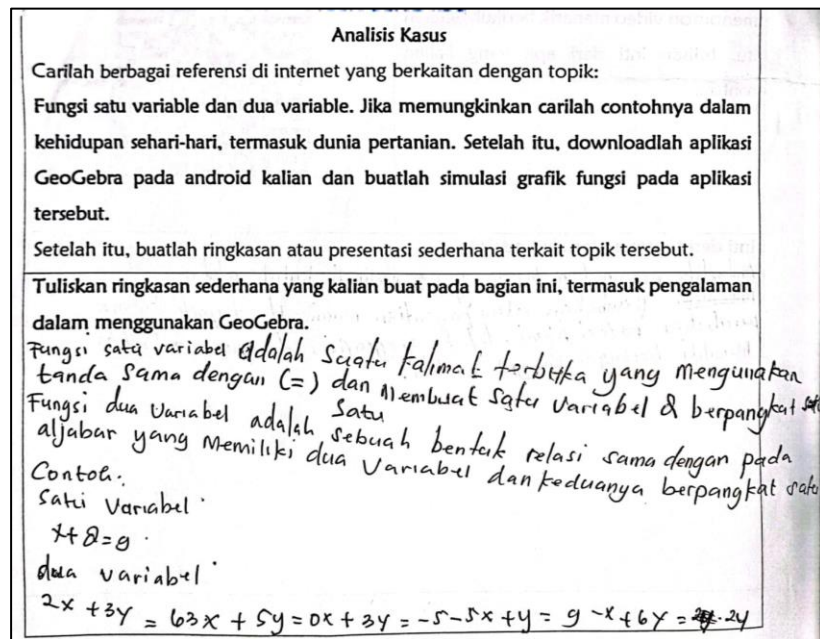 Analisis Kasus
Carilah berbagai referensi di internet yang berkaitan dengan topik:
Fungsi satu variable dan dua variable. Jika memungkinkan carilah contohnya dalam
kehidupan sehari-hari, termasuk dunia pertanian. Setelah itu, downloadlah aplikasi
GeoGebra pada android kalian dan buatlah simulasi grafik fungsi pada aplikasi
tersebut.
Setelah itu, buatlah ringkasan atau presentasi sederhana terkait topik tersebut.
Tuliskan ringkasan sederhana yang kalian buat pada bagian ini, termasuk pengalaman
dalam menggunakan GeoGebra.
Fungsi satu variabel adalah suatu kalimat terbuka yang mengunakan
tanda sama dengan (=) dan Membuat satu variabel & berpangkat satu
Satu
Fungsi dua Variabel adalah sebuah bentuk relasi sama dengan pada
aljabar yang Memiliki dua Variabel dan keduanya berpangkat satu
Contoh:
Satu Variabel
x+8=9
dua variabel
2x + 3y = 63x + 5y = 0x + 3y = -5 -5x + y = 9 -x + 6y = 2y